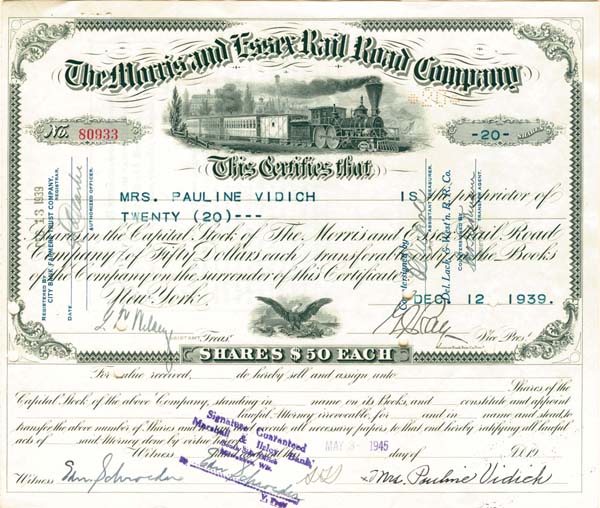 The Morris and Essex Rail Road Company
No. 80933
-20- SHARES
This Certifies that
MRS. PAULINE VIDICH is the proprietor of
TWENTY (20)---
Shares in the Capital Stock of The Morris and Essex Rail Road
Company of Fifty Dollars each, transferable on the Books
of the Company on the surrender of this Certificate.
New York, DEC 12 1939.
ASSISTANT Treas. Vice Prest.
SHARES $50 EACH
REGISTERED BY 13 1939
CITY BANK FARMERS TRUST COMPANY,
REGISTRAR,
AUTHORIZED OFFICER.
Countersigned by
ASSISTANT TREASURER.
Del. Lack. & West'n. R. R. Co.
COUNTERSIGNED BY
TRANSFER AGENT.
For value received, do hereby sell and assign unto
Shares of the
Capital Stock of the above Company, standing in name on its Books, and constitute and appoint
lawful Attorney irrevocable, for and in name and stead to
transfer the above number of Shares and execute all necessary papers to that end hereby ratifying all lawful
acts of said Attorney done by virtue hereof
Signature Guaranteed
Marshall & Ilsley Bank
By
V. Pres
MAY 1945 day of 19
Witness
Witness Mrs. Pauline Vidich